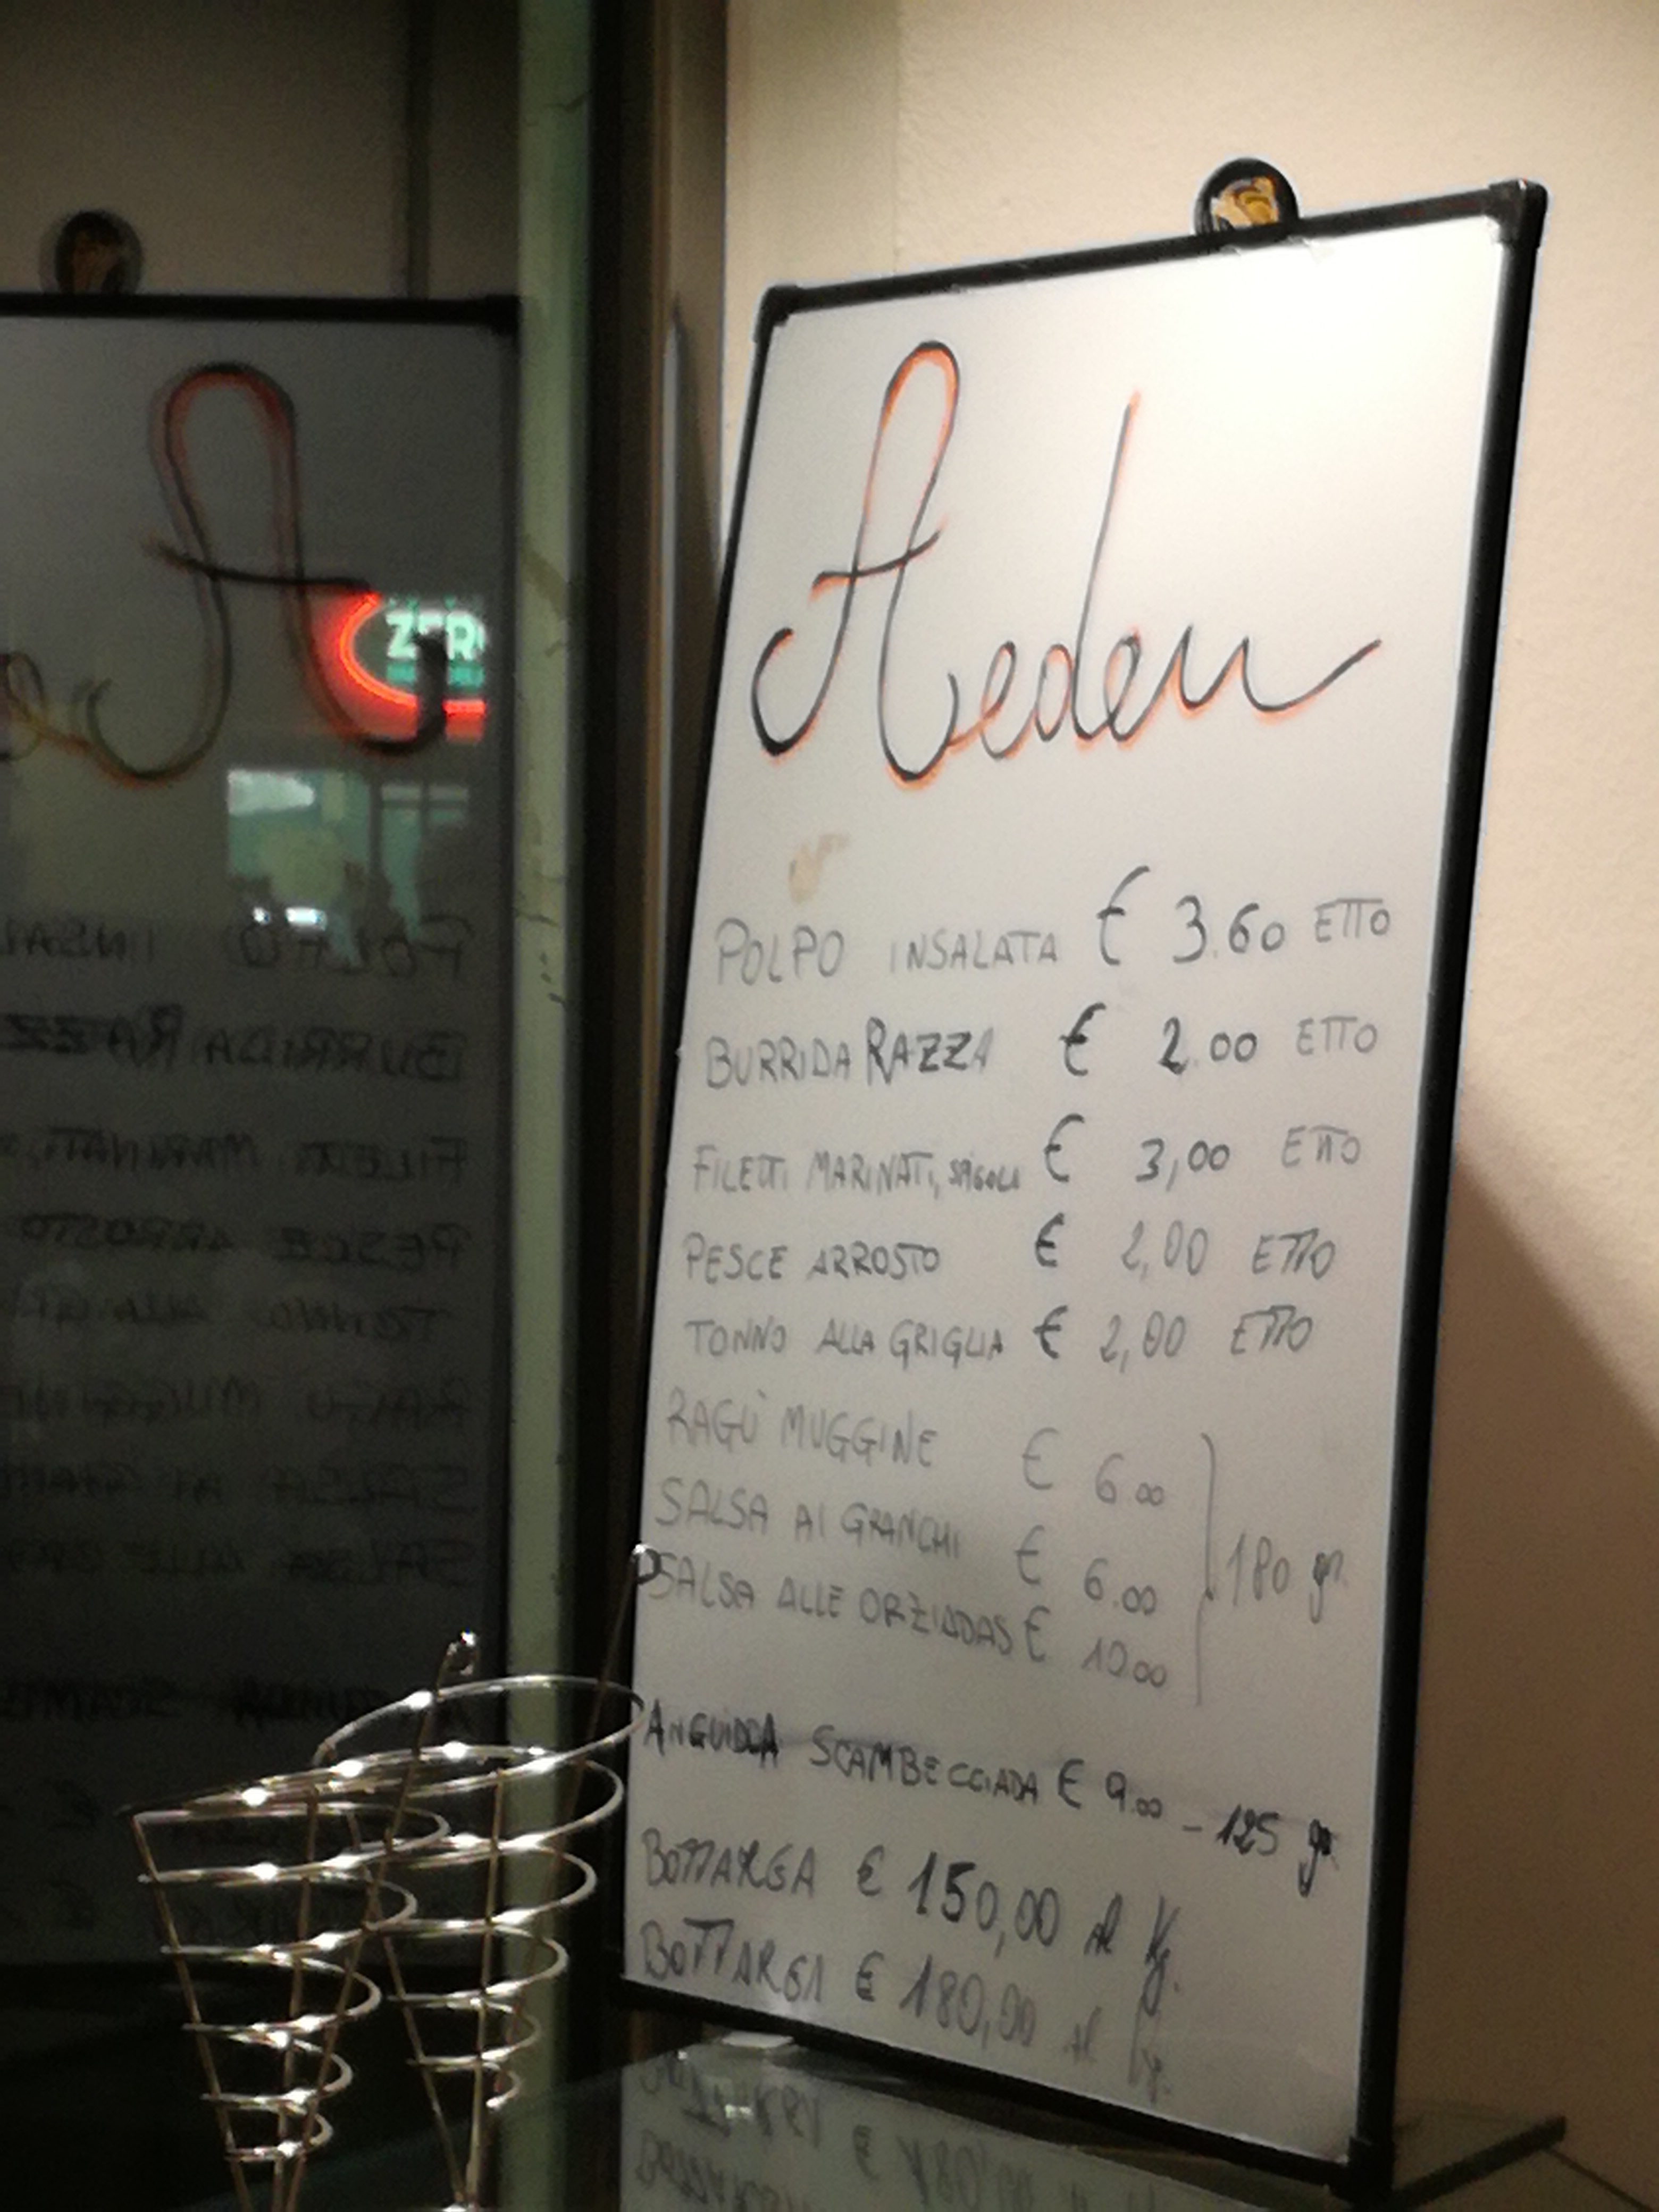 Aeden
ZERO
POLPO INSALATA € 3.60 ETTO
BURRIDA RAZZA € 2.00 ETTO
FILETTI MARINATI, SPIGOLE € 3,00 ETTO
PESCE ARROSTO € 2,00 ETTO
TONNO ALLA GRIGLIA € 2,00 ETTO
RAGÙ MUGGINE € 6.00
SALSA AI GRANCHI € 6.00
180 gr.
SALSA ALLE ORZIADAS € 10.00
ANGUILLA SCAMBECCIADA € 9.00 - 125 gr.
BOTTARGA € 150,00 al Kg.
BOTTARGA € 180,00 al Kg.